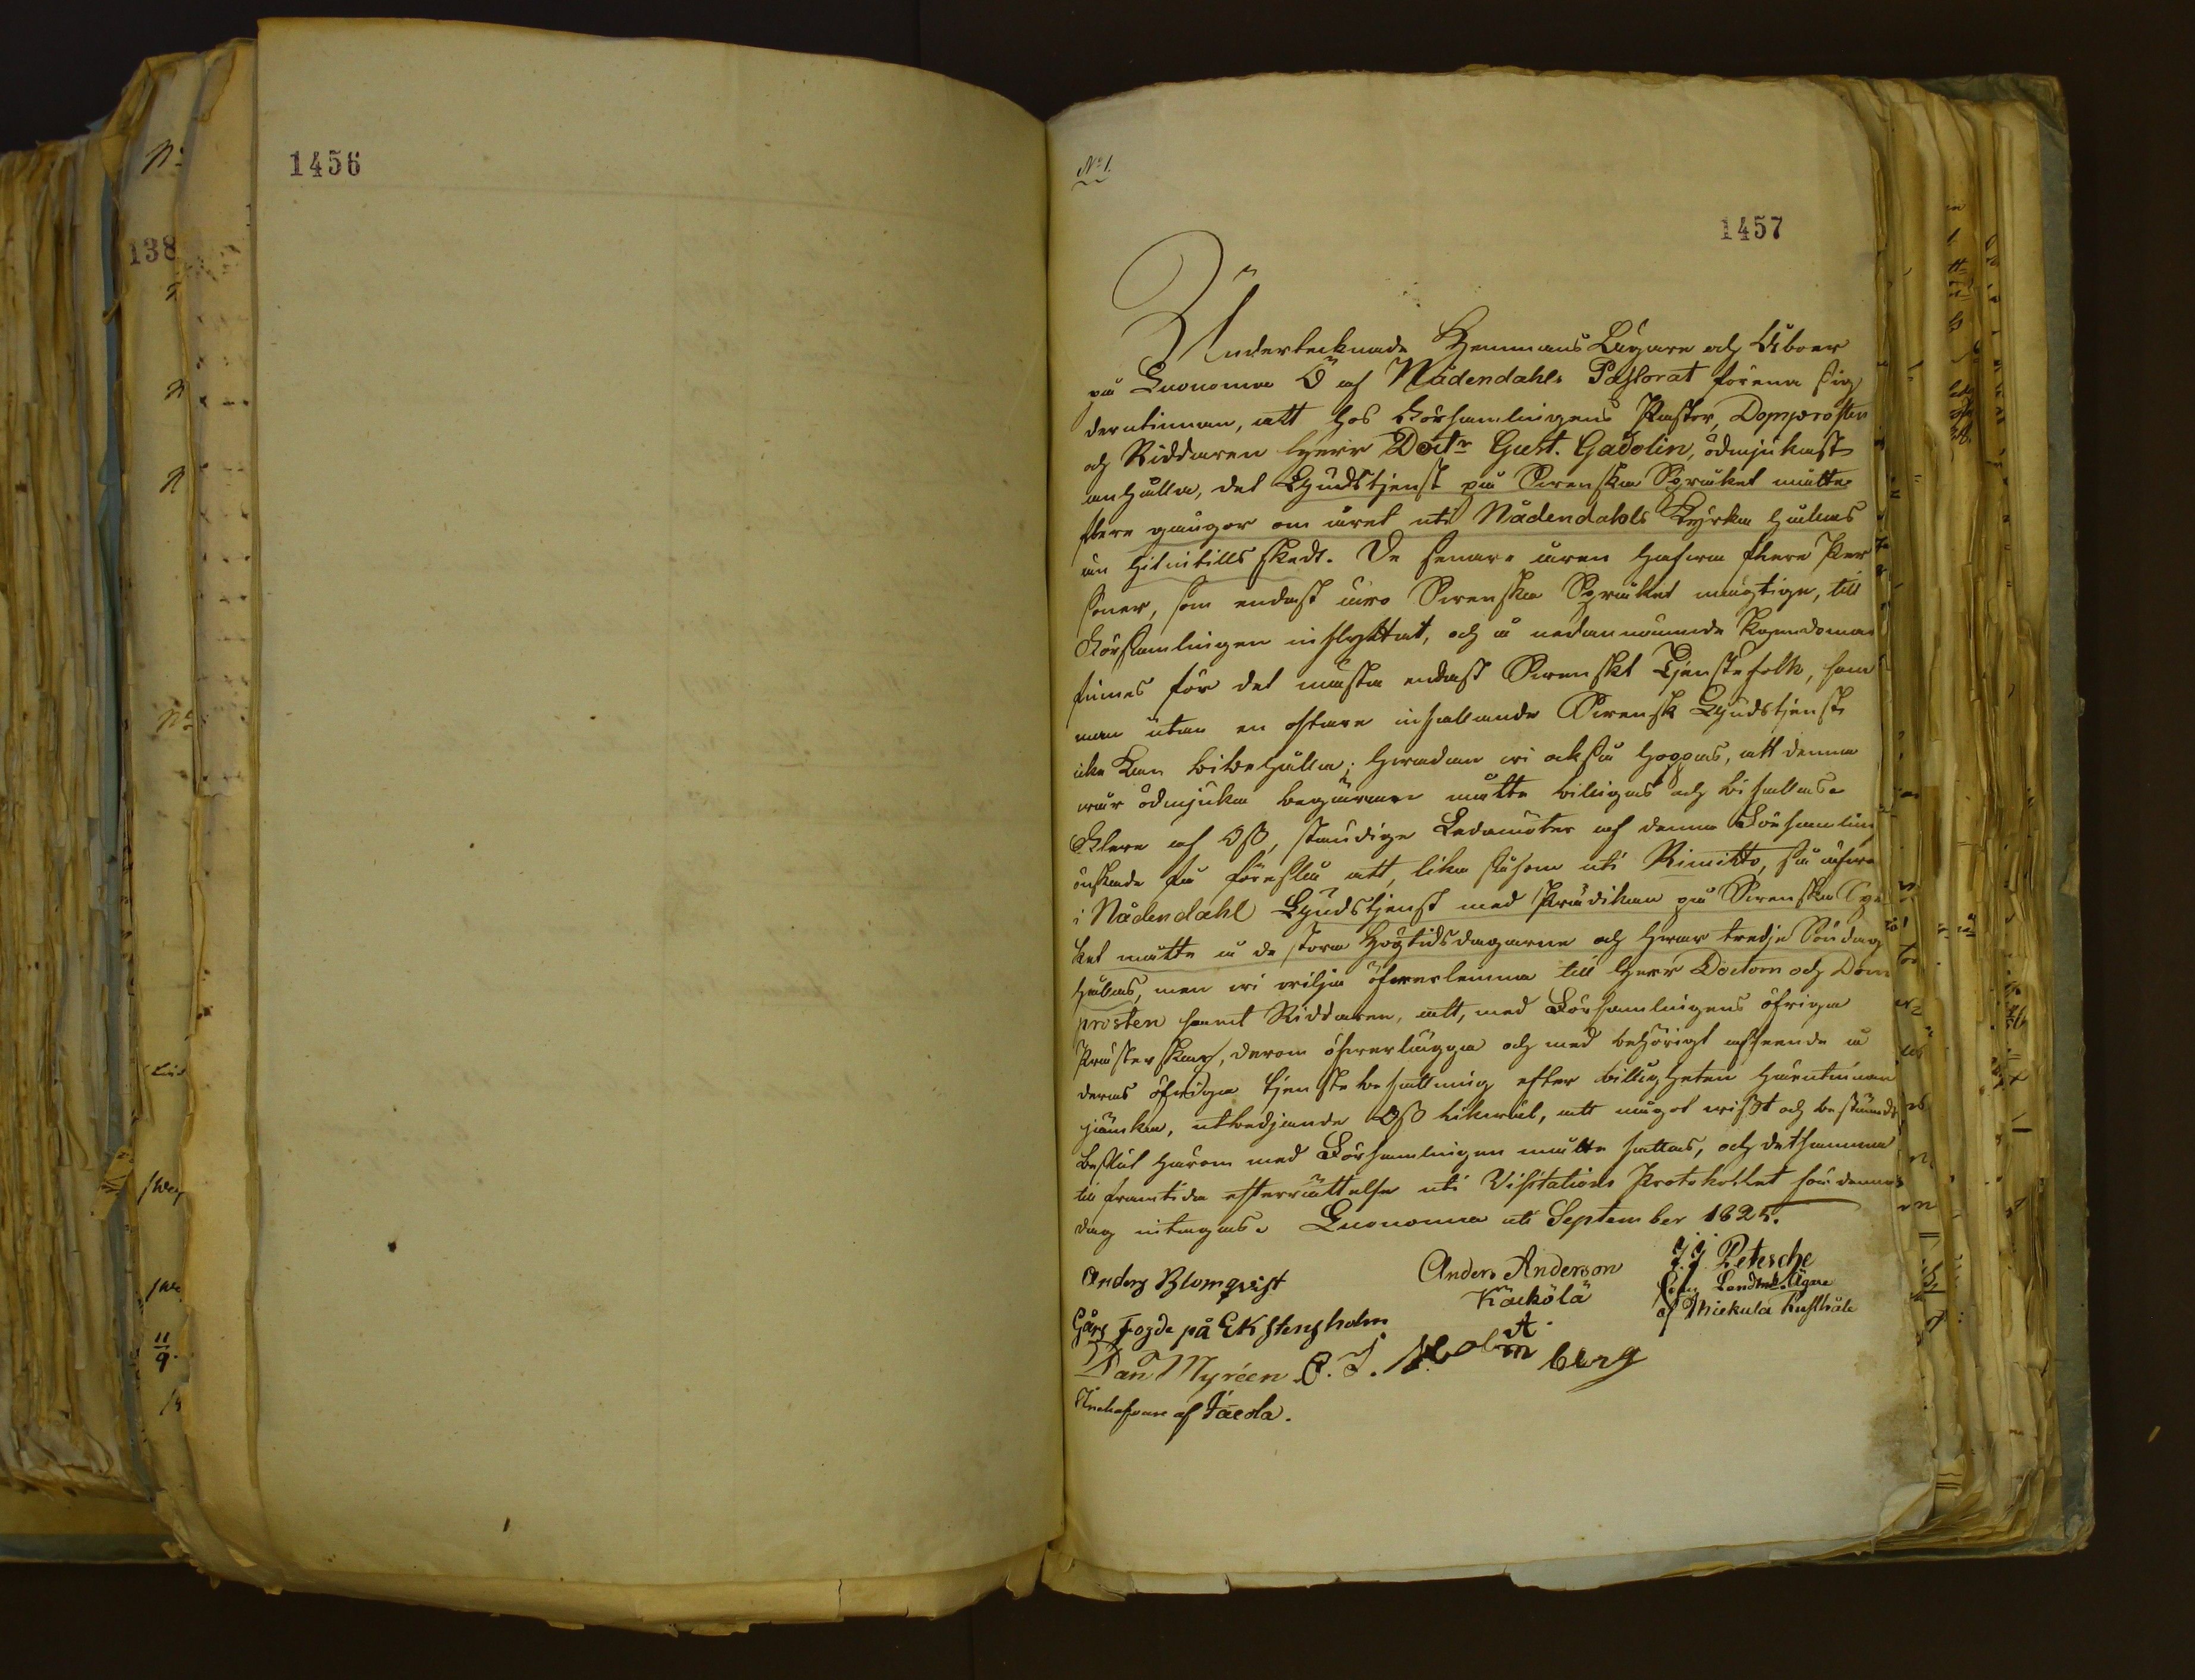 1456
No 1.
1457
Undertecknade Hemmans Ägare och Åboer
på Luonnonma Ö af Nådendahls Pastorat förena sig
derutinnan, att hos Församlingens Pastor, Domprosten
och Riddaren Herr Doctr Gust. Gadolin, ödmjukast
anhålla, det Gudstjenst på Svenska Språket måtte
flere gångor om året uti Nådendahls Kyrka hållas
än hitintills skedt. De senare åren hafva flere Per
soner, som endast äro Svenska Språket mägtige, till
Församlingen inflyttat, och å nedannämnde Egendomar
finnes för det mästa endast Svenskt Tjenstefolk, som
man utan en oftare infallande Svensk Gudstjenst
icke kan bibehålla; hvadan vi också hoppas, att denna
vår ödmjuka begäran måtte billigas och bifallas.
Flere af Oss, ständige Ledamöter af denna Församling
önskade få föreslå att, lika såsom uti Rimitto, så äfven
i Nådendahl Gudstjenst med Prädikan på Svenska Språ
ket måtte å de stora Högtidsdagarne och hvar tredje Söndag
hållas, men vi vilja öfverlemna till Herr Doctorn och Dom
prosten samt Riddaren, att, med Församlingens öfriga
Prästerskap, derom öfverlägga och med behörigt afseende å
deras öfriga tjenstebefattning efter billigheten härutinnan
jämka, utbedjande Oss likväl, att något visst och bestämdt
beslut härom med Församlingen måtte fattas, och detsamma
till framtida efterrättelse uti Visitations Protokollet för denna
dag intagas. Luonnonma uti September 1825.
Anders Blomqvist
Gårs Fogde på Ekstensholm
Anders Anderson
Käckölä
J. J. Petesche
Landtbr. Ägare
af Miekula Rusthåll
Dan Myréen C. J. Holmberg
Innehafvare af Jäcola.